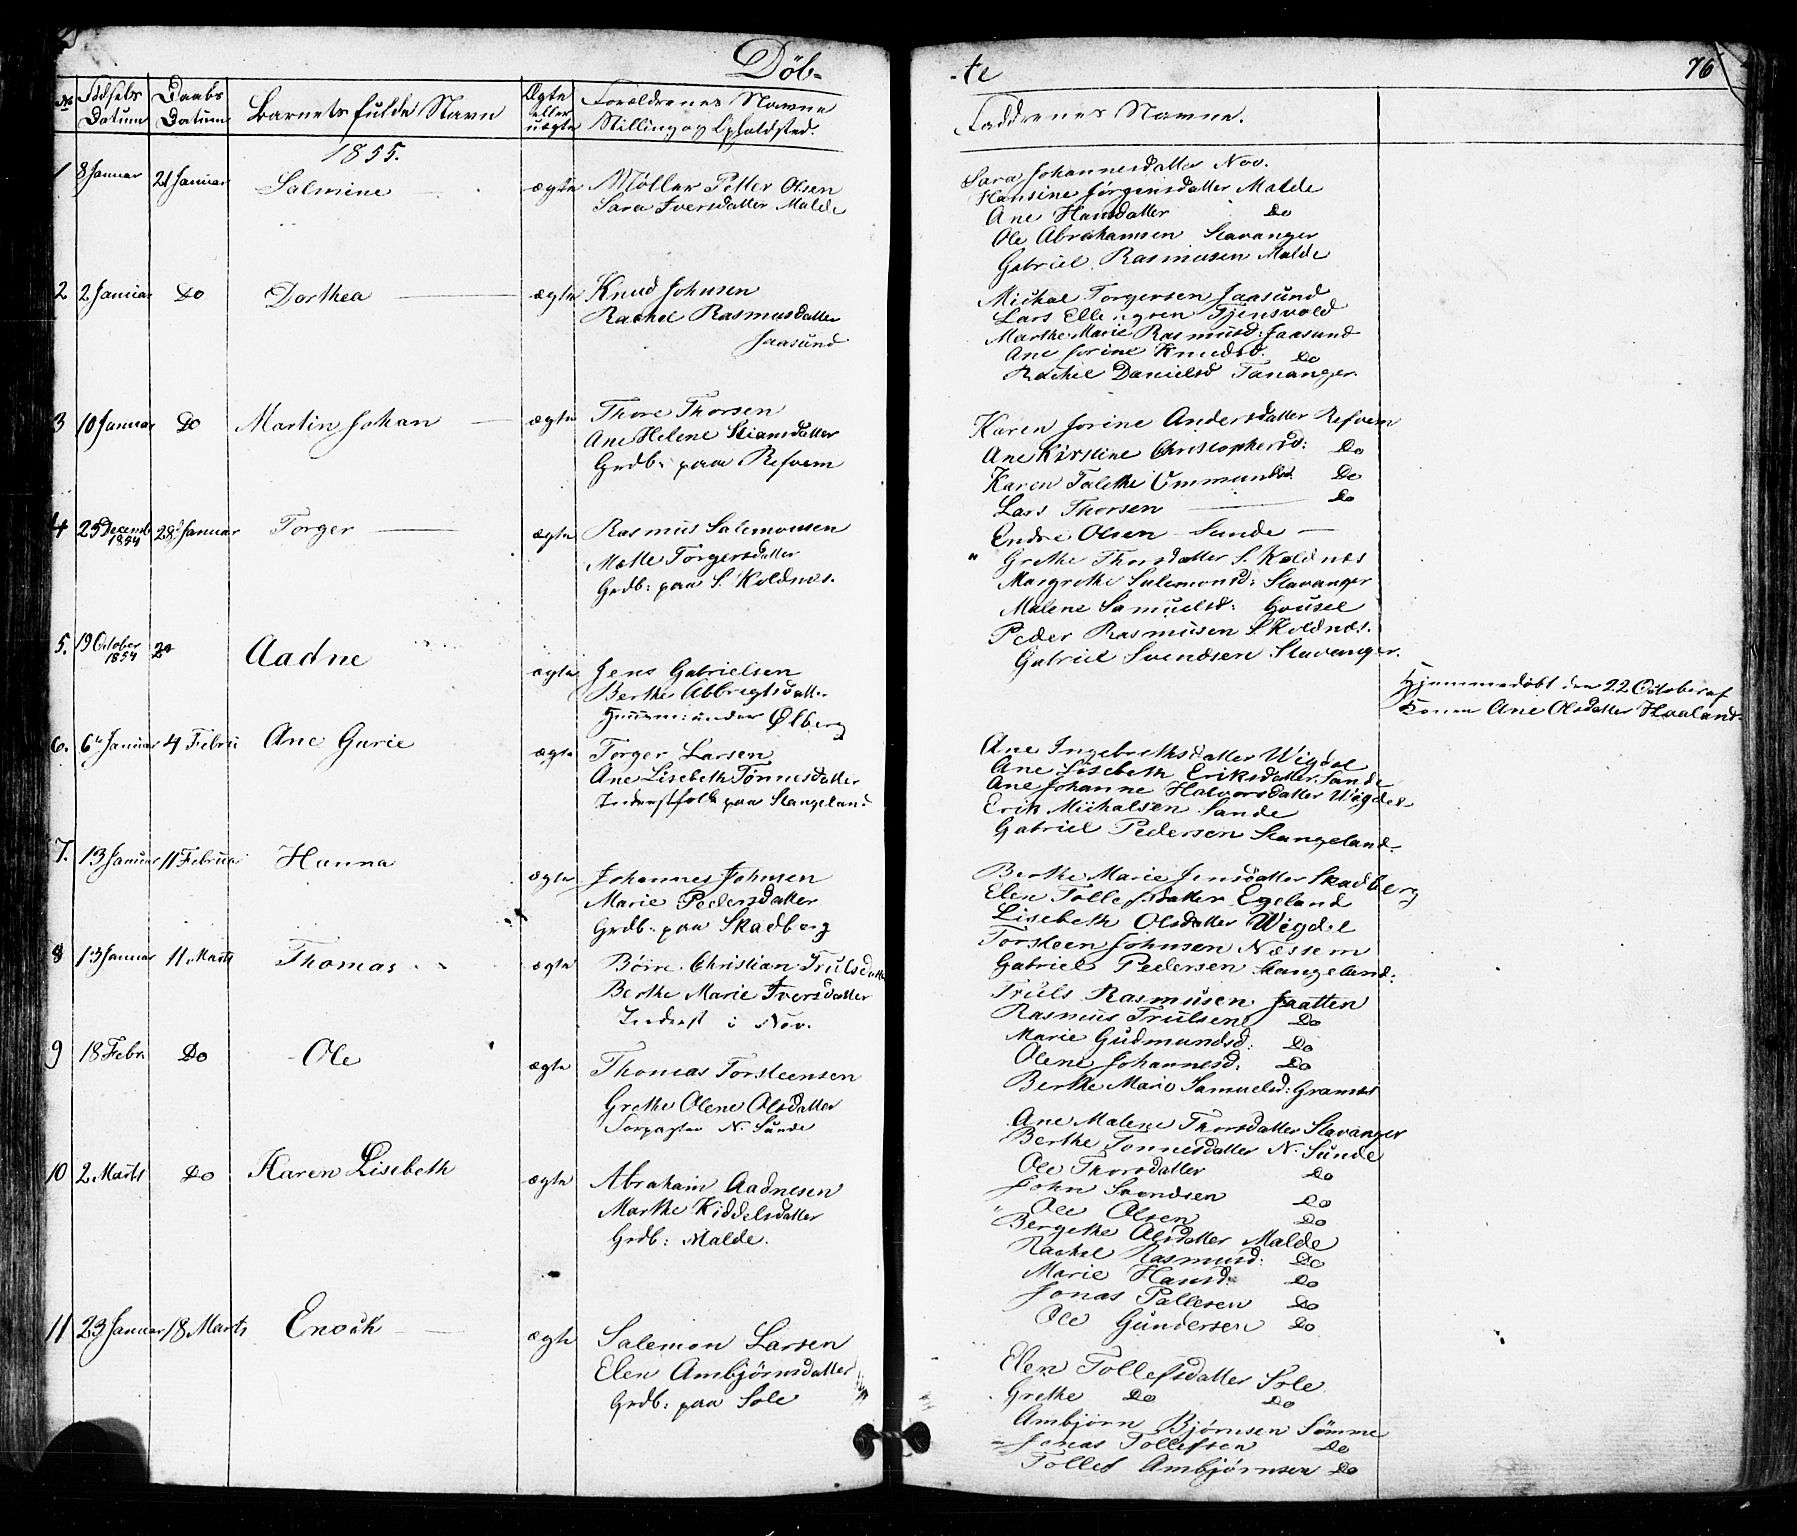 Döb-
№
Fødsels Datum
Daabs Datum
Barnets fulde Navn
Ægte eller uægte
Forældrenes Navne
Stilling og Opholdsted.
1855.
1 8 Januar 21 Januar Salmine ægte Møller Petter Olsen
Sara Iversdatter Malde
2 2 Januar Do Dorthea ægte Knud Johnsen
Rachel Rasmusdatter
Jaasund
3 10 Januar Do Martin Johan ægte Thore Thorsen
Ane Helene Stiansdatter
Grdb: paa Refvem
4 25 Decemb 1854 28 Januar Torger ægte Rasmus Salemonsen
Mette Torgersdatter
Grdb: paa S. Koldnes.
5. 19 October 1854 Aadne ægte Jens Gabrielsen
Berthe Abbregtsdatter
Huusm: under Ølberg
6. 6te Januar 4 Febru Ane Gurie ægte Torger Larsen
Ane Lisebeth Tønnesdatter
Inderstfolk paa Stangeland
7. 13 Januar 11 Februar Hanna ægte Johannes Johnsen
Marie Pedersdatter
Grdb: paa Skadberg
8 13 Januar 11 Marts Thomas ægte Børre Christian Trulsdatter
Berthe Marie Iversdatter
Inderst i Nov.
9 18 Febr. Do Ole ægte Thomas Torsteensen
Grethe Olene Olsdatter
Forpagter N. Sunde
10 2 Marts Do Karen Lisebeth ægte Abraham Aadnesen
Marthe Kiddelsdatter
Grdb: Malde.
11 23 Januar 18 Marts Enock ægte Salemon Larsen
Elen Ambjørnsdatter
Grdb: paa Sole
-te
76
Faddrenes Navne.
Sara Johannesdatter Nov.
Hansine Jørgensdatter Malde
Ane Hansdatter Do
Ole Abrahamsen Stavanger
Gabriel Rasmusen Malde
Michal Torgersen Jaasund
Lars Ellingsen Tjensvold
Marthe Marie Rasmusd: Jaasund
Ane Jorine Knudsd. Do
Rachel Danielsd Tananger.
Karen Jorine Andersdatter Refvem
Ane Kirstine Christophersd: Do
Karen Talethe Ommundsd. Do
Lars Thorsen Do
Endre Olsen Sunde
" Grethe Thorsdatter S. Koldnes
Margrethe Salemonsd: Stavanger
Malene Samuelsd: Gousel
Peder Rasmusen S. Koldnes.
Gabriel Svendsen Stavanger.
Hjemmedøbt den 22 October af
Konen Ane Olsdatter Haaland.
Ane Ingebrethsdatter Wigdel
Ane Lisebeth Eriksdatter Sande
Ane Johanne Halvorsdatter Wigdel
Erik Michalsen Sande
Gabriel Pedersen Stangeland.
Berthe Marie Jensdatter Skadberg
Elen Tollefsdatter Egeland
Lisebeth Olsdatter Wigdel
Torsteen Johnsen Næssem
Gabriel Pedersen Stangeland:
Truls Rasmusen Jaatten
Rasmus Trulsen Do
Marie Gudmundsd: Do
Olene Johannesd: Do
Berthe Marie Samuelsd: Granæs
Ane Malene Thorsdatter Stavanger
Berthe Tonnesdatter N. Sunde
Ole Thorsdatter Do
John Svendsen Do
" Ole Olsen Do
Bergethe Olsdatter Malde
Rachel Rasmusd: Do
Marie Hansd: Do
Jonas Pallesen Do
Ole Gundersen Do
Elen Tollefsdatter Sole
Grethe Do Do
Ambjørn Bjørnsen Sømme
Jonas Tollefsen Do
Tollef Ambjørnsen Do